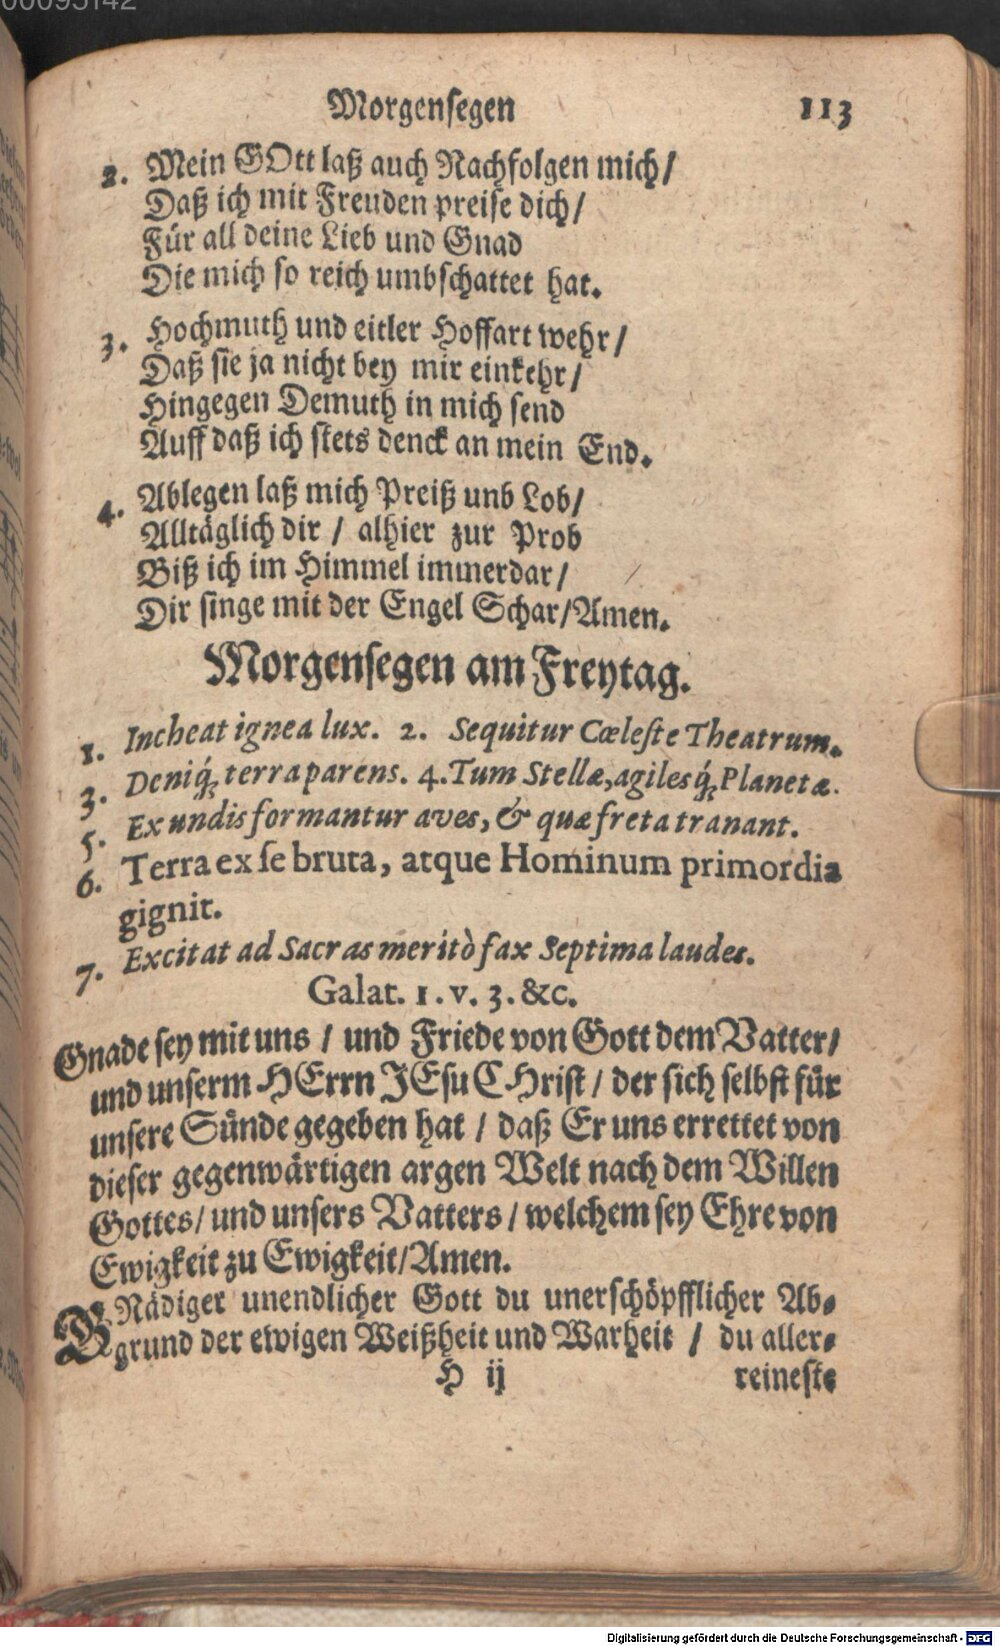 Morgensegen 113
2. Mein GOtt laß auch Nachfolgen mich/
Daß ich mit Freuden preise dich/
Für all deine Lieb und Gnad
Die mich so reich umbschattet hat.
3. Hochmuth und eitler Hoffart wehr/
Daß sie ja nicht bey mir einkehr/
Hingegen Demuth in mich send
Auff daß ich stets denck an mein End.
4. Ablegen laß mich Preiß unb Lob/
Alltäglich dir / alhier zur Prob
Biß ich im Himmel immerdar/
Dir singe mit der Engel Schar/Amen.
Morgensegen am Freytag.
1. Incheat ignea lux. 2. Sequitur Cæleste Theatrum.
3. Deniq́; terra parens. 4. Tum Stellæ, agiles q́; Planetæ.
5. Ex undis formantur aves, & quæ freta tranant.
6. Terra ex se bruta, atque Hominum primordia
gignit.
7. Excitat ad Sacras meritò fax Septima laudes.
Galat. 1. v. 3. &c.
Gnade sey mit uns / und Friede von Gott dem Vatter/
und unserm HErrn JEsu CHrist / der sich selbst für
unsere Sünde gegeben hat / daß Er uns errettet von
dieser gegenwärtigen argen Welt nach dem Willen
Gottes/ und unsers Vatters / welchem sey Ehre von
Ewigkeit zu Ewigkeit/Amen.
GNädiger unendlicher Gott du unerschöpfflicher Ab-
grund der ewigen Weißheit und Warheit / du aller-
H ij reineste
Digitalisierung gefördert durch die Deutsche Forschungsgemeinschaft - DFG